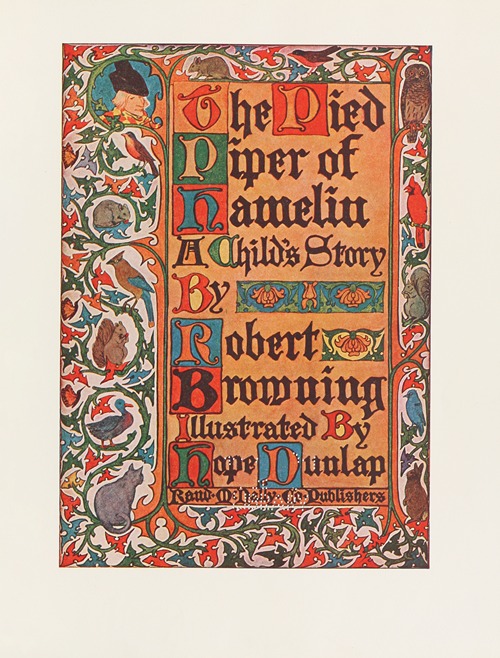 The Pied
Piper of
Hamelin
A Child's Story
By
Robert
Browning
Illustrated By
Hope Dunlap
Rand McNally Co. Publishers